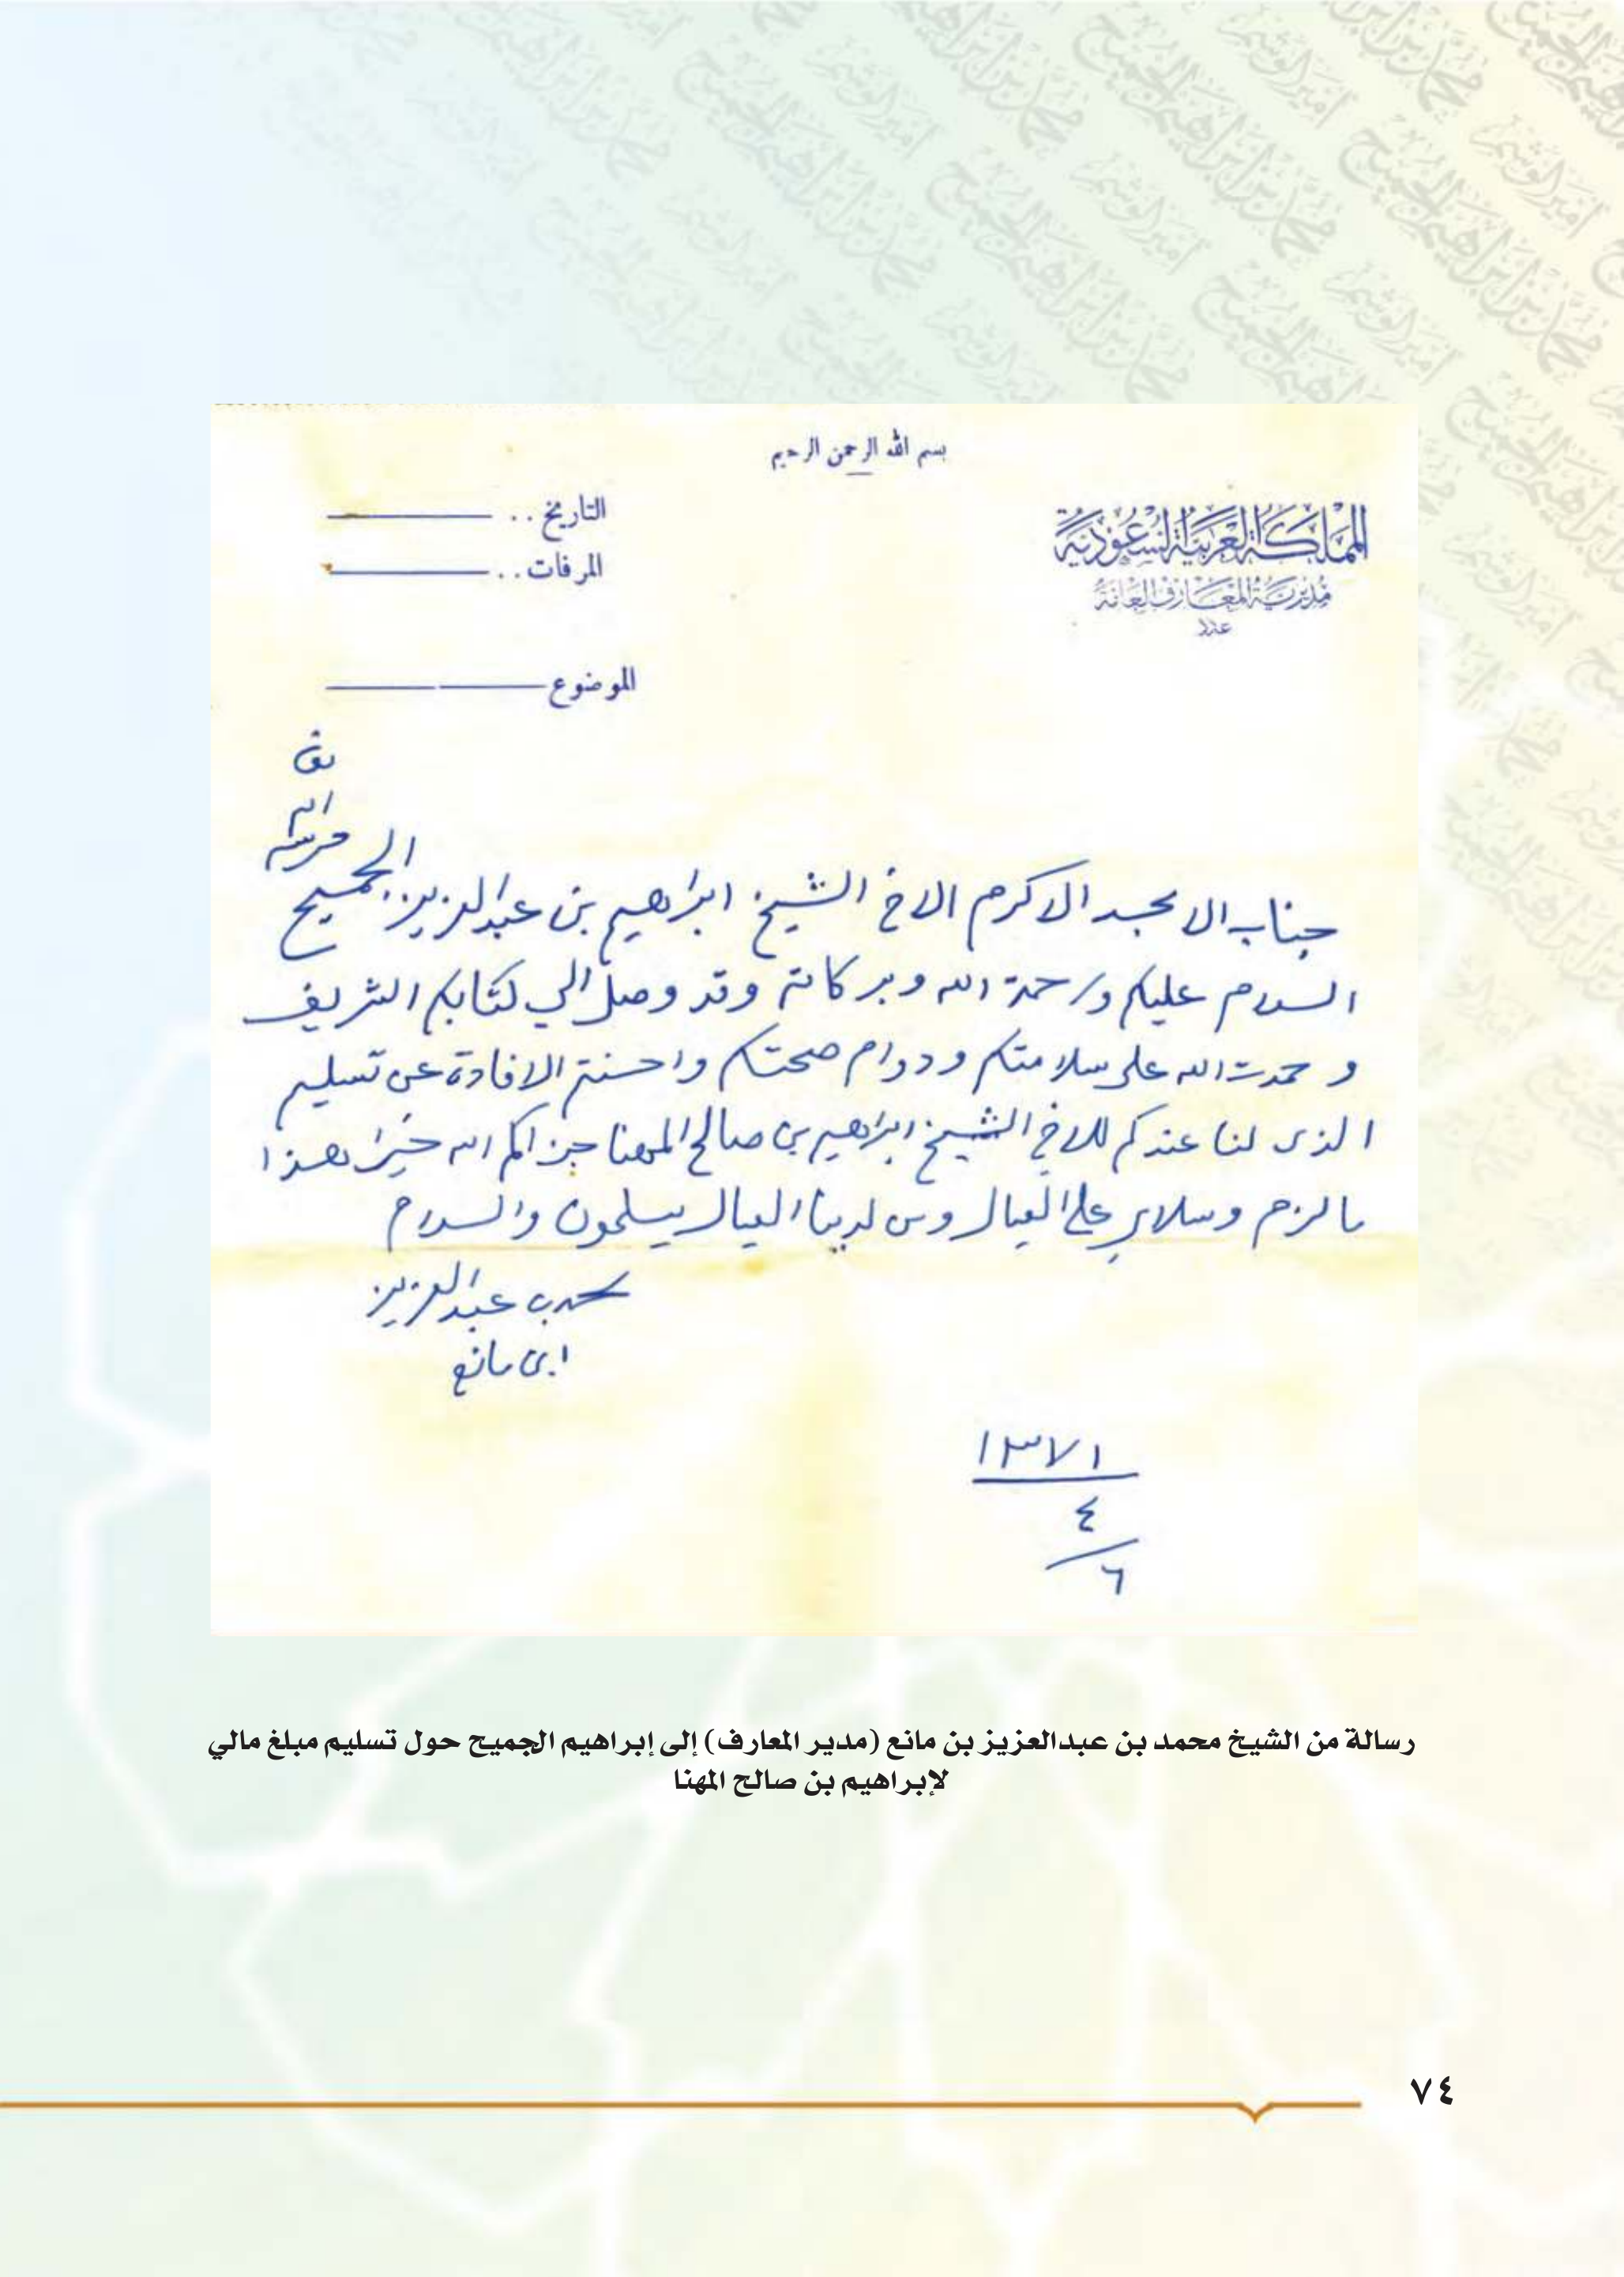 بسم الله الرحمن الرحيم
المملكة العربية السعودية
مديرية المعارف العامة
عدد
التاريخ ..
المرفقات ..
الموضوع
جناب الامجد الاكرم الاخ الشيخ ابراهيم بن عبدالعزيز الجميح
السلام عليكم ورحمة الله وبركاته وقد وصل الي كتابكم الشريف
وحمدت الله على سلامتكم ودوام صحتكم واحسنتم الافادة عن تسليم
الذى لنا عندكم للاخ الشيخ ابراهيم بن صالح المهنا جزاكم الله خيرا هذا
مالزم وسلامي على العيال ومن لدينا العيال يسلمون والسلام
محمد بن عبدالعزيز
ابن مانع
١٣٧١
٤
٦
رسالة من الشيخ محمد بن عبدالعزيز بن مانع (مدير المعارف) إلى إبراهيم الجميح حول تسليم مبلغ مالي
لإبراهيم بن صالح المهنا
٧٤